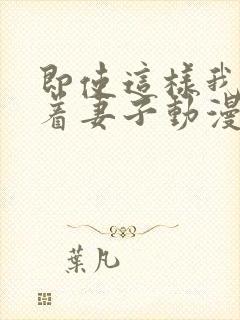 即使這樣我
着妻子動漫
葉凡